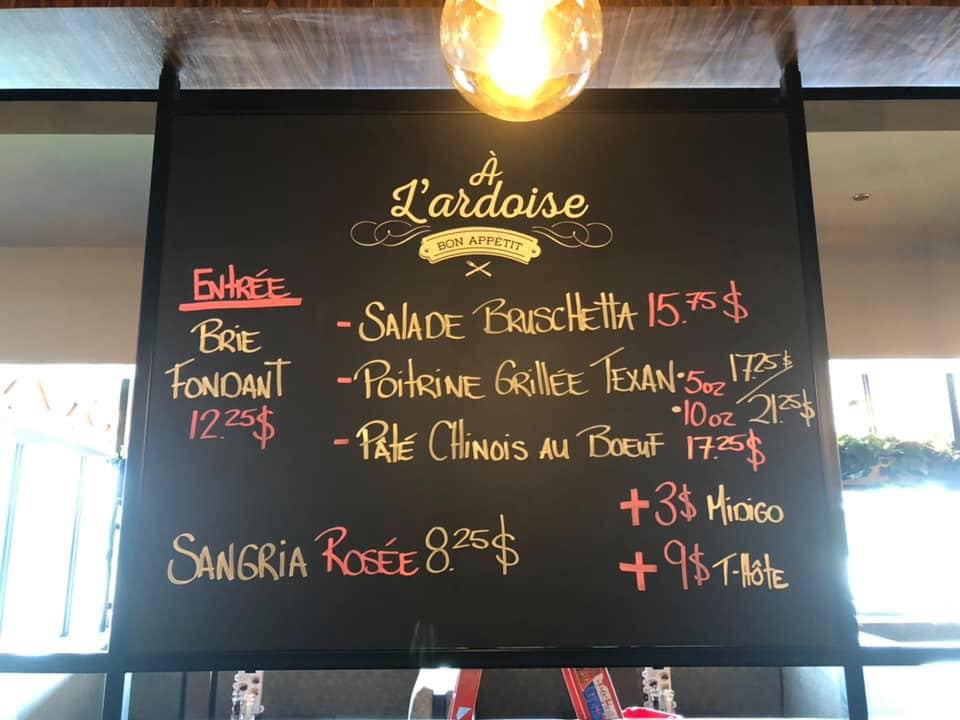 À
L'ardoise
BON APPÉTIT
ENTRÉE
BRIE
FONDANT
12.25$
- SALADE BRUSCHETTA 15.75$
- POITRINE GRILLÉE TEXAN • 5oz 17.25$/
• 10oz 21.25$
- PÂTÉ CHINOIS AU BOEUF 17.25$
+3$ MIDIGO
+9$ T-HÔTE
SANGRIA ROSÉE 8.25$